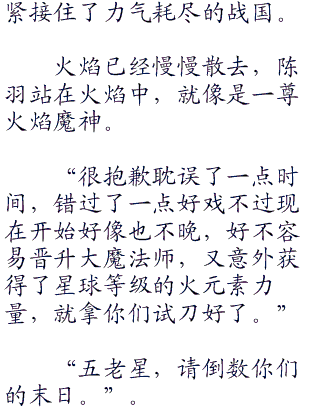 紧接住了力气耗尽的战国。
火焰已经慢慢散去，陈
羽站在火焰中，就像是一尊
火焰魔神。
“很抱歉耽误了一点时
间，错过了一点好戏不过现
在开始好像也不晚，好不容
易晋升大魔法师，又意外获
得了星球等级的火元素力
量，就拿你们试刀好了。”
“五老星，请倒数你们
的末日。”。